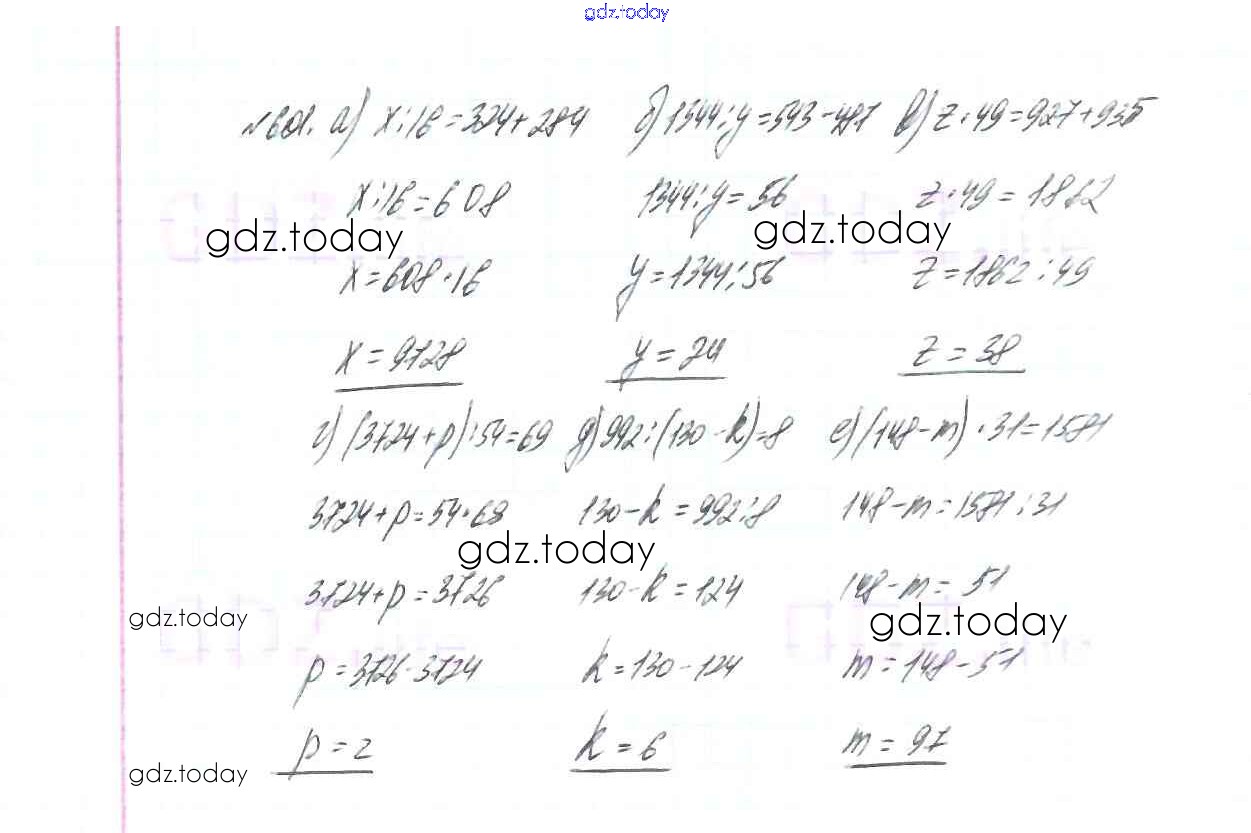 gdz.today
№601. а) x:16=324+284 б) 1344:y=543-487 в) z·49=927+935
x:16=608 1344:y=56 z·49=1862
gdz.today gdz.today
x=608·16 y=1344:56 z=1862:49
x=9728 y=24 z=38
г) (3724+p):54=69 д) 992:(130-k)=8 е) (148-m)·31=1581
3724+p=54·69 130-k=992:8 148-m=1581:31
gdz.today
3724+p=3726 130-k=124 148-m=51
gdz.today gdz.today
p=3726-3724 k=130-124 m=148-51
p=2 k=6 m=97
gdz.today